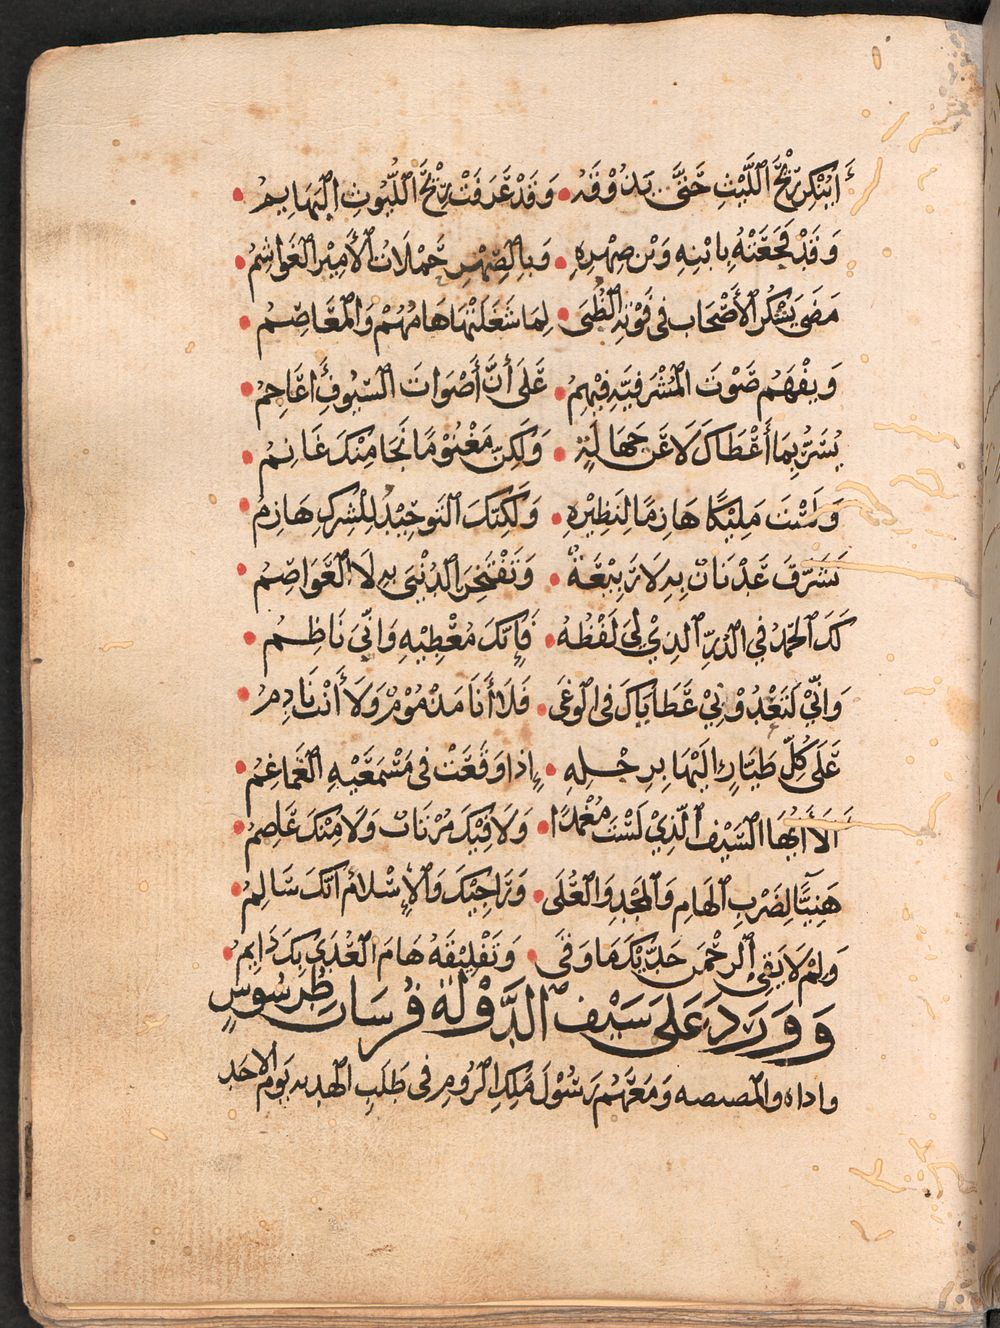 أَيُنْكِرُ رِيْحَ اللَّيْثِ حَتَّى يَذُوْقَهُ • وَقَدْ عَرَفَتْ رِيْحَ اللُّيُوثِ الْبَهَايِمُ •
وَقَدْ فَجَعَتْهُ بِابْنِهِ وَبْنِ صِهْرِهِ • وَبِالصِّهْرِ حَمْلَاتُ الْأَمِيْرِ الْغَوَاشِمُ •
مَضَى يَشْكُرُ الْأَصْحَابَ فِي فَوْتِهِ الظُّبَى • لِمَا شَغَلَتْهَا هَامُهُمْ وَالْمَعَاصِمُ •
وَيَفْهَمُ صَوْتَ الْمَشْرَفِيَّةِ فِيْهِمُ • عَلَى أَنَّ أَصْوَاتَ السُّيُوفِ أَعَاجِمُ •
يُسَرُّ بِمَا أَعْطَاكَ لَا عَنْ جَهَالَةٍ • وَلَكِنَّ مَغْنُوْمًا نَجَا مِنْكَ غَانِمُ •
وَلَسْتَ مَلِيْكًا هَازِمًا لِنَظِيْرِهِ • وَلَكِنَّكَ التَّوْحِيْدُ لِلشِّرْكِ هَازِمُ •
تَشَرَّفَ عَدْنَانٌ بِهِ لَا رَبِيْعَةٌ • وَتَفْتَخِرُ الدُّنْيَى بِهِ لَا الْعَوَاصِمُ •
لَكَ الْحَمْدُ فِي الدُّرِّ الَّذِيْ لِيَ لَفْظُهُ • فَإِنَّكَ مُعْطِيْهِ وَانِّيَ نَاظِمُ •
وَانِّيْ لَتَعْدُوْ بِيْ عَطَايَاكَ فِي الْوَغَى • فَلَا أَنَا مَذْمُوْمٌ وَلَا أَنْتَ نَادِمُ •
عَلَى كُلِّ طَيَّارٍ إِلَيْهَا بِرِجْلِهِ • إِذَا وَقَعَتْ فِي مَسْمَعَيْهِ الْغَمَاغِمُ •
أَلَا أَيُّهَا السَّيْفُ الَّذِيْ لَسْتَ مُغْمَدًا • وَلَا فِيْكَ مُرْتَابٌ وَلَا مِنْكَ عَاصِمُ •
هَنِيْئًا لِضَرْبِ الْهَامِ وَالْمَجْدِ وَالْعُلَى • وَرَاجِيْكَ وَالْإِسْلَامُ انَّكَ سَالِمُ •
وَلِمْ لَا يَقِي الرَّحْمَنُ حَدَّيْكَ مَا وَقَى • وَتَفْلِيْقُهُ هَامَ الْعُدَى بِكَ دَايِمُ •
وَوَرَدَ عَلَى سَيْفِ الدَّوْلَةِ فُرْسَانُ طَرَسُوسٍ
واداه والمصيصه وَمَعَهُمْ رَسُوْلُ مَلِكِ الرُّومِ فِي طَلَبِ الهدنه يَوْمَ الاحد